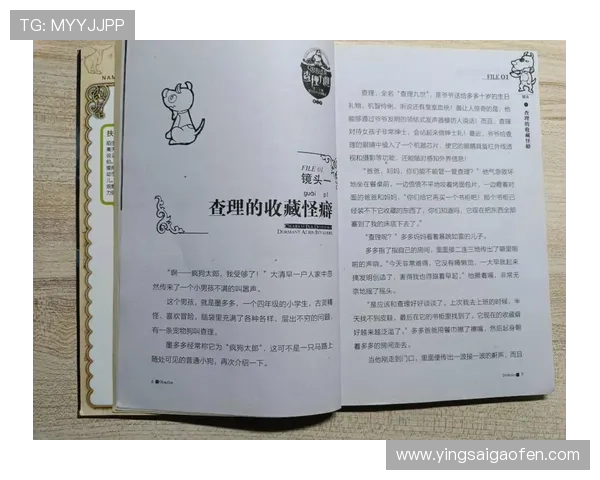 TG: MYYJJPP
NAM
扶
查理九世
FILE 01
镜头一
guài pǐ
查理的收藏怪癖
CHARLIE IX &
DORMANT ALIEN INVADERS
“啊——疯狗太郎，我受够了！”大清早一户人家中忽
然传来了一个小男孩不满的叫嚣声。
这个男孩，就是墨多多，一个四年级的小学生，古灵精
怪、喜欢冒险，脑袋里充满了各种各样、层出不穷的问题，
有一条宠物狗叫查理。
墨多多经常称它为“疯狗太郎”，这可不是一只马路上
随处可见的普通小狗，再次介绍一下。
6 Charlie
FILE 01
镜头一 查理的收藏怪癖
查理，全名“查理九世”，是爷爷送给多多十岁的生日
礼物，机智伶俐，听说还有皇室血统！最让人惊奇的是，他
能够通过爷爷发明的领结式发声器模仿人说话！而且，查理
对待女孩子非常绅士，会站起来借绅士礼！最近，爷爷给查
理的眼睛中植入了一个机器芯片，使它的眼睛具有红外线透
视和摄影等功能，还能随时感知外界信息！
“爸爸，妈妈，你们能不能管一管查理？”他气急败坏
地坐在餐桌前，一边愤愤不平地咬着烤面包片，一边瞪着对
面的爸爸和妈妈，“你们给它再买一个书柜吧！般个书柜已
经装不下它收藏的东西了，你们知道吗，它现在把东西全部
塞到了我的床底下去了。”
“查理呢？”多多妈妈看着暴跳如雷的儿子。
多多指了指自己的房间，里面接二连三地传出了噼里啪
啦的声响，“今天非常难得，它没有睡懒觉，一大早就起来
搞发明创造了，害得我也得跟着早起。”他撅着嘴，非常无
奈地摇了摇头。
“是应该和查理好好谈谈了，上次我去上班的时候，半
天找不到皮鞋，最后在它的书柜里找到了，它现在的收藏癖
好越来越泛滥了。”多多爸爸用餐巾擦了擦嘴，然后起身朝
着多多的房间走去。
当他刚走到门口，里面便传出一波接一波的鼾声，而且
7
www.yingsaigaofen.com